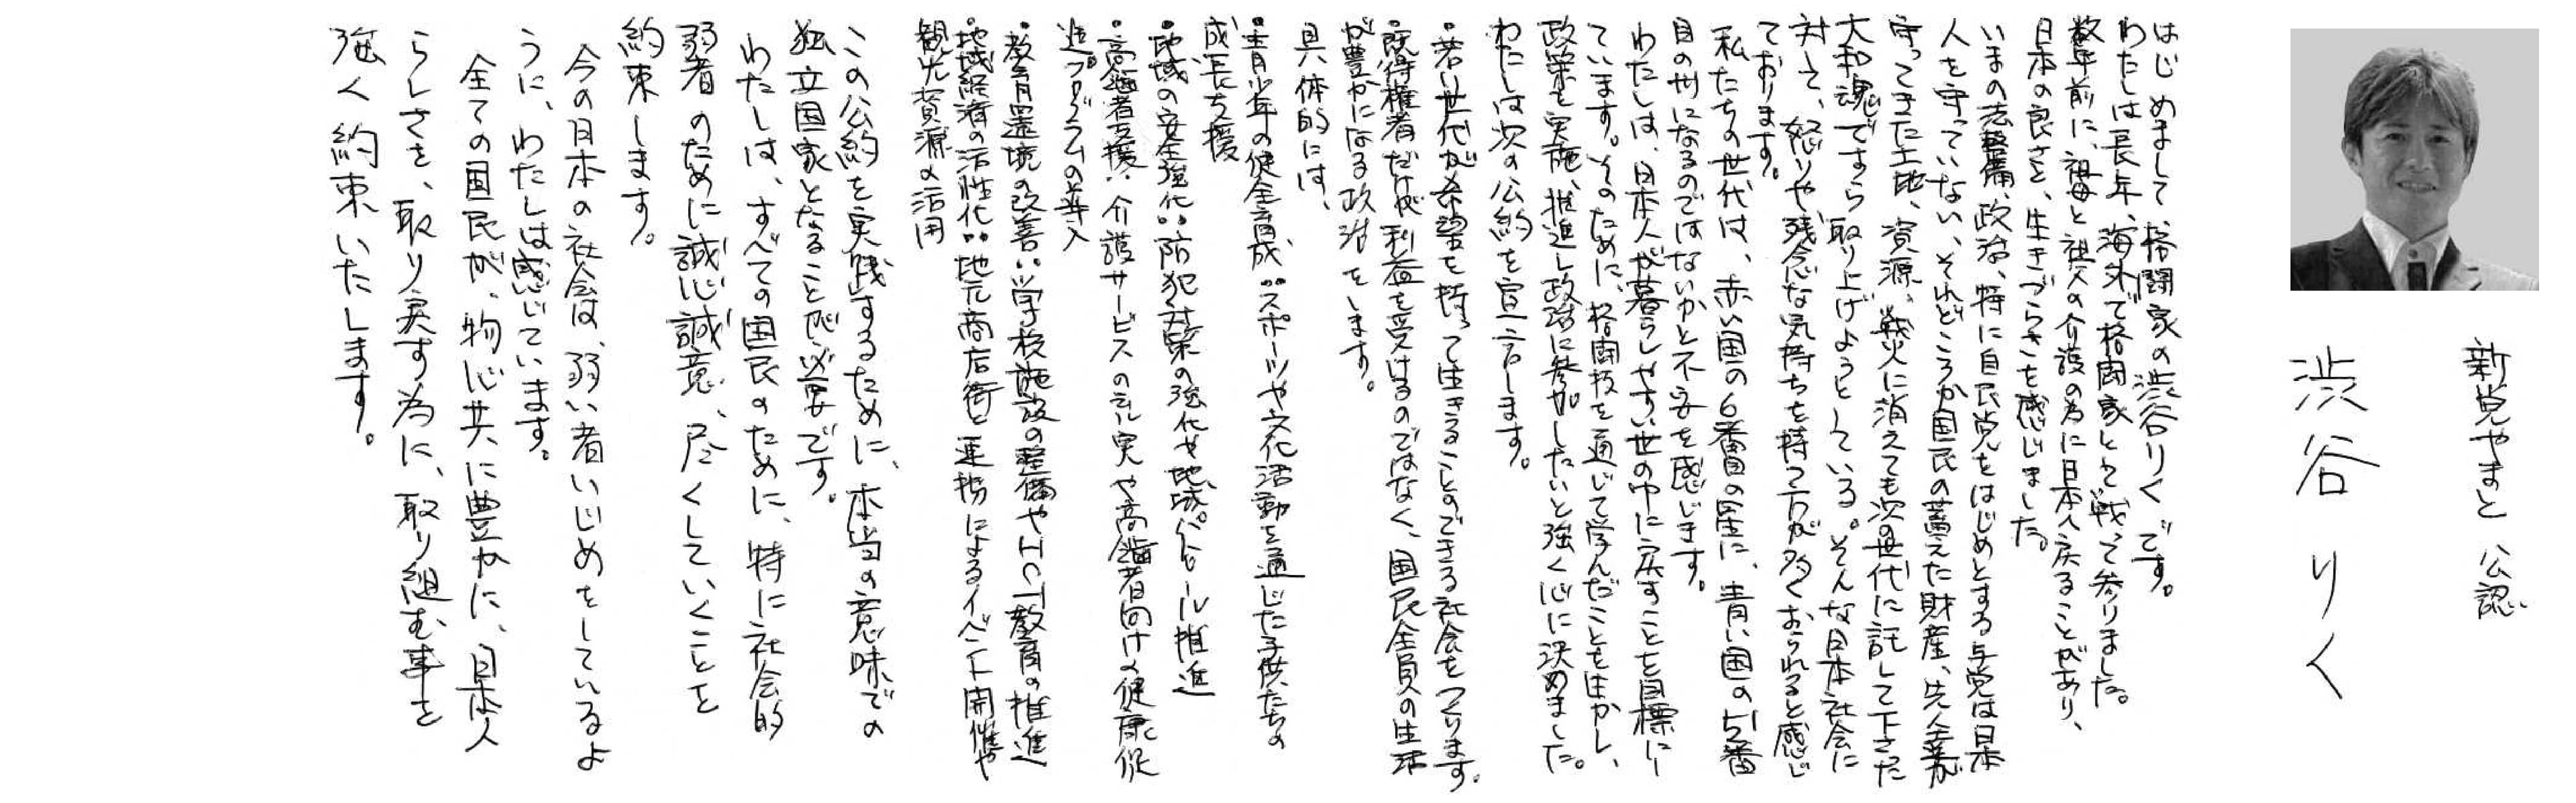 新党やまと 公認
渋谷りく
はじめまして、格闘家の渋谷りくです。
わたしは長年、海外で格闘家として戦って参りました。
数年前に、祖母と祖父の介護の為に日本へ戻ることがあり、
日本の良さと、生きづらさを感じました。
いまの法整備、政治、特に自民党をはじめとする与党は日本
人を守っていない、それどころか国民の蓄えた財産、先人達が
守ってきた土地、資源、戦火に消えても次の世代に託して下さった
大和魂ですら取り上げようとしている。そんな日本社会に
対して、怒りや残念な気持ちを持つ方が多くおられると感じ
ております。
私たちの世代は、赤い国の6番目の星に、青い国の51番
目の州になるのではないかと不安を感じます。
わたしは、日本人が暮らしやすい世の中に戻すことを目標にし
ています。そのために、格闘技を通じて学んだことを生かし、
政策を実施、推進し政治に参加したいと強く心に決めました。
わたしは次の公約を宣言します。
・若い世代が希望を持って生きることのできる社会をつくります。
・既得権者だけが利益を受けるのではなく、国民全員の生活
が豊かになる政治をします。
具体的には、
・青少年の健全育成:スポーツや文化活動を通じた子供たちの
成長支援
・地域の安全強化:防犯対策の強化や地域パトロール推進
・高齢者支援:介護サービスの充実や高齢者向けの健康促
進プログラムの導入
・教育環境の改善:学校施設の整備やICT教育の推進
・地域経済の活性化:地元商店街と連携によるイベント開催や
観光資源の活用
この公約を実践するために、本当の意味での
独立国家となることが必要です。
わたしは、すべての国民のために、特に社会的
弱者のために誠心誠意、尽くしていくことを
約束します。
今の日本の社会は、弱い者いじめをしているよ
うに、わたしは感じています。
全ての国民が、物心共に豊かに、日本人
らしさを、取り戻す為に、取り組む事を
強く約束いたします。